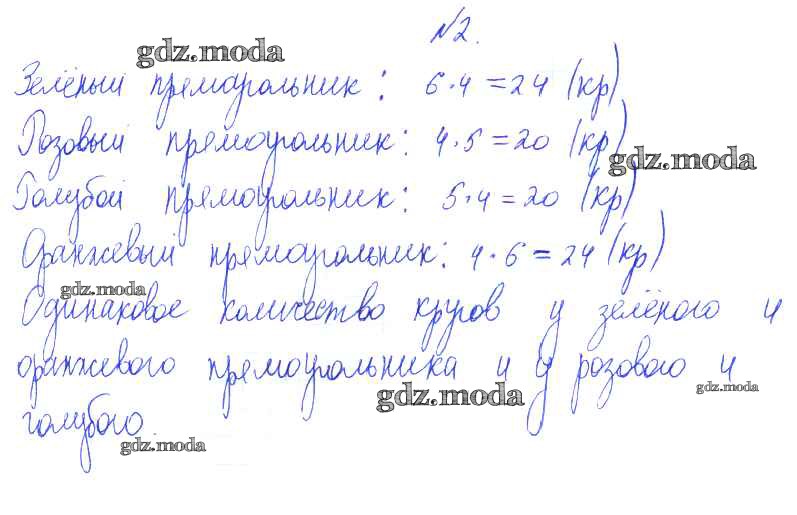 №2.
gdz.moda
Зелёный прямоугольник: 6·4=24 (кр)
Розовый прямоугольник: 4·5=20 (кр)
gdz.moda
Голубой прямоугольник: 5·4=20 (кр)
Оранжевый прямоугольник: 4·6=24 (кр)
gdz.moda
Одинаковое количество кругов у зелёного и
оранжевого прямоугольника и у розового и
gdz.moda
gdz.moda
голубого.
gdz.moda